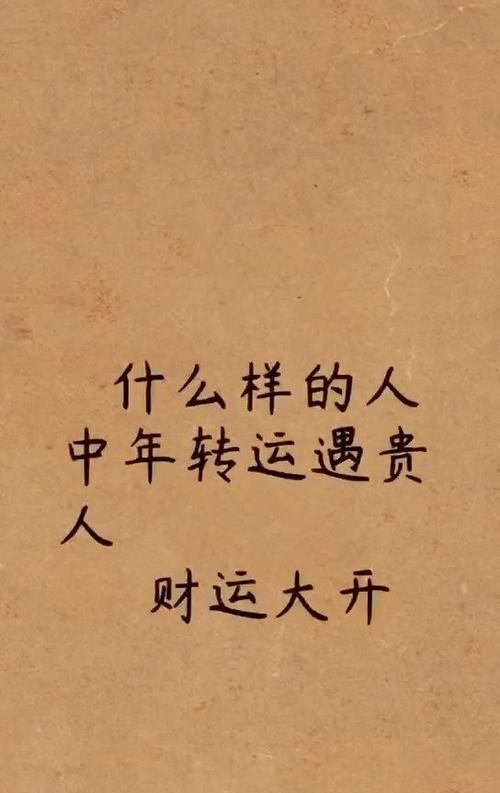 什么样的人
中年转运遇贵
人
财运大开